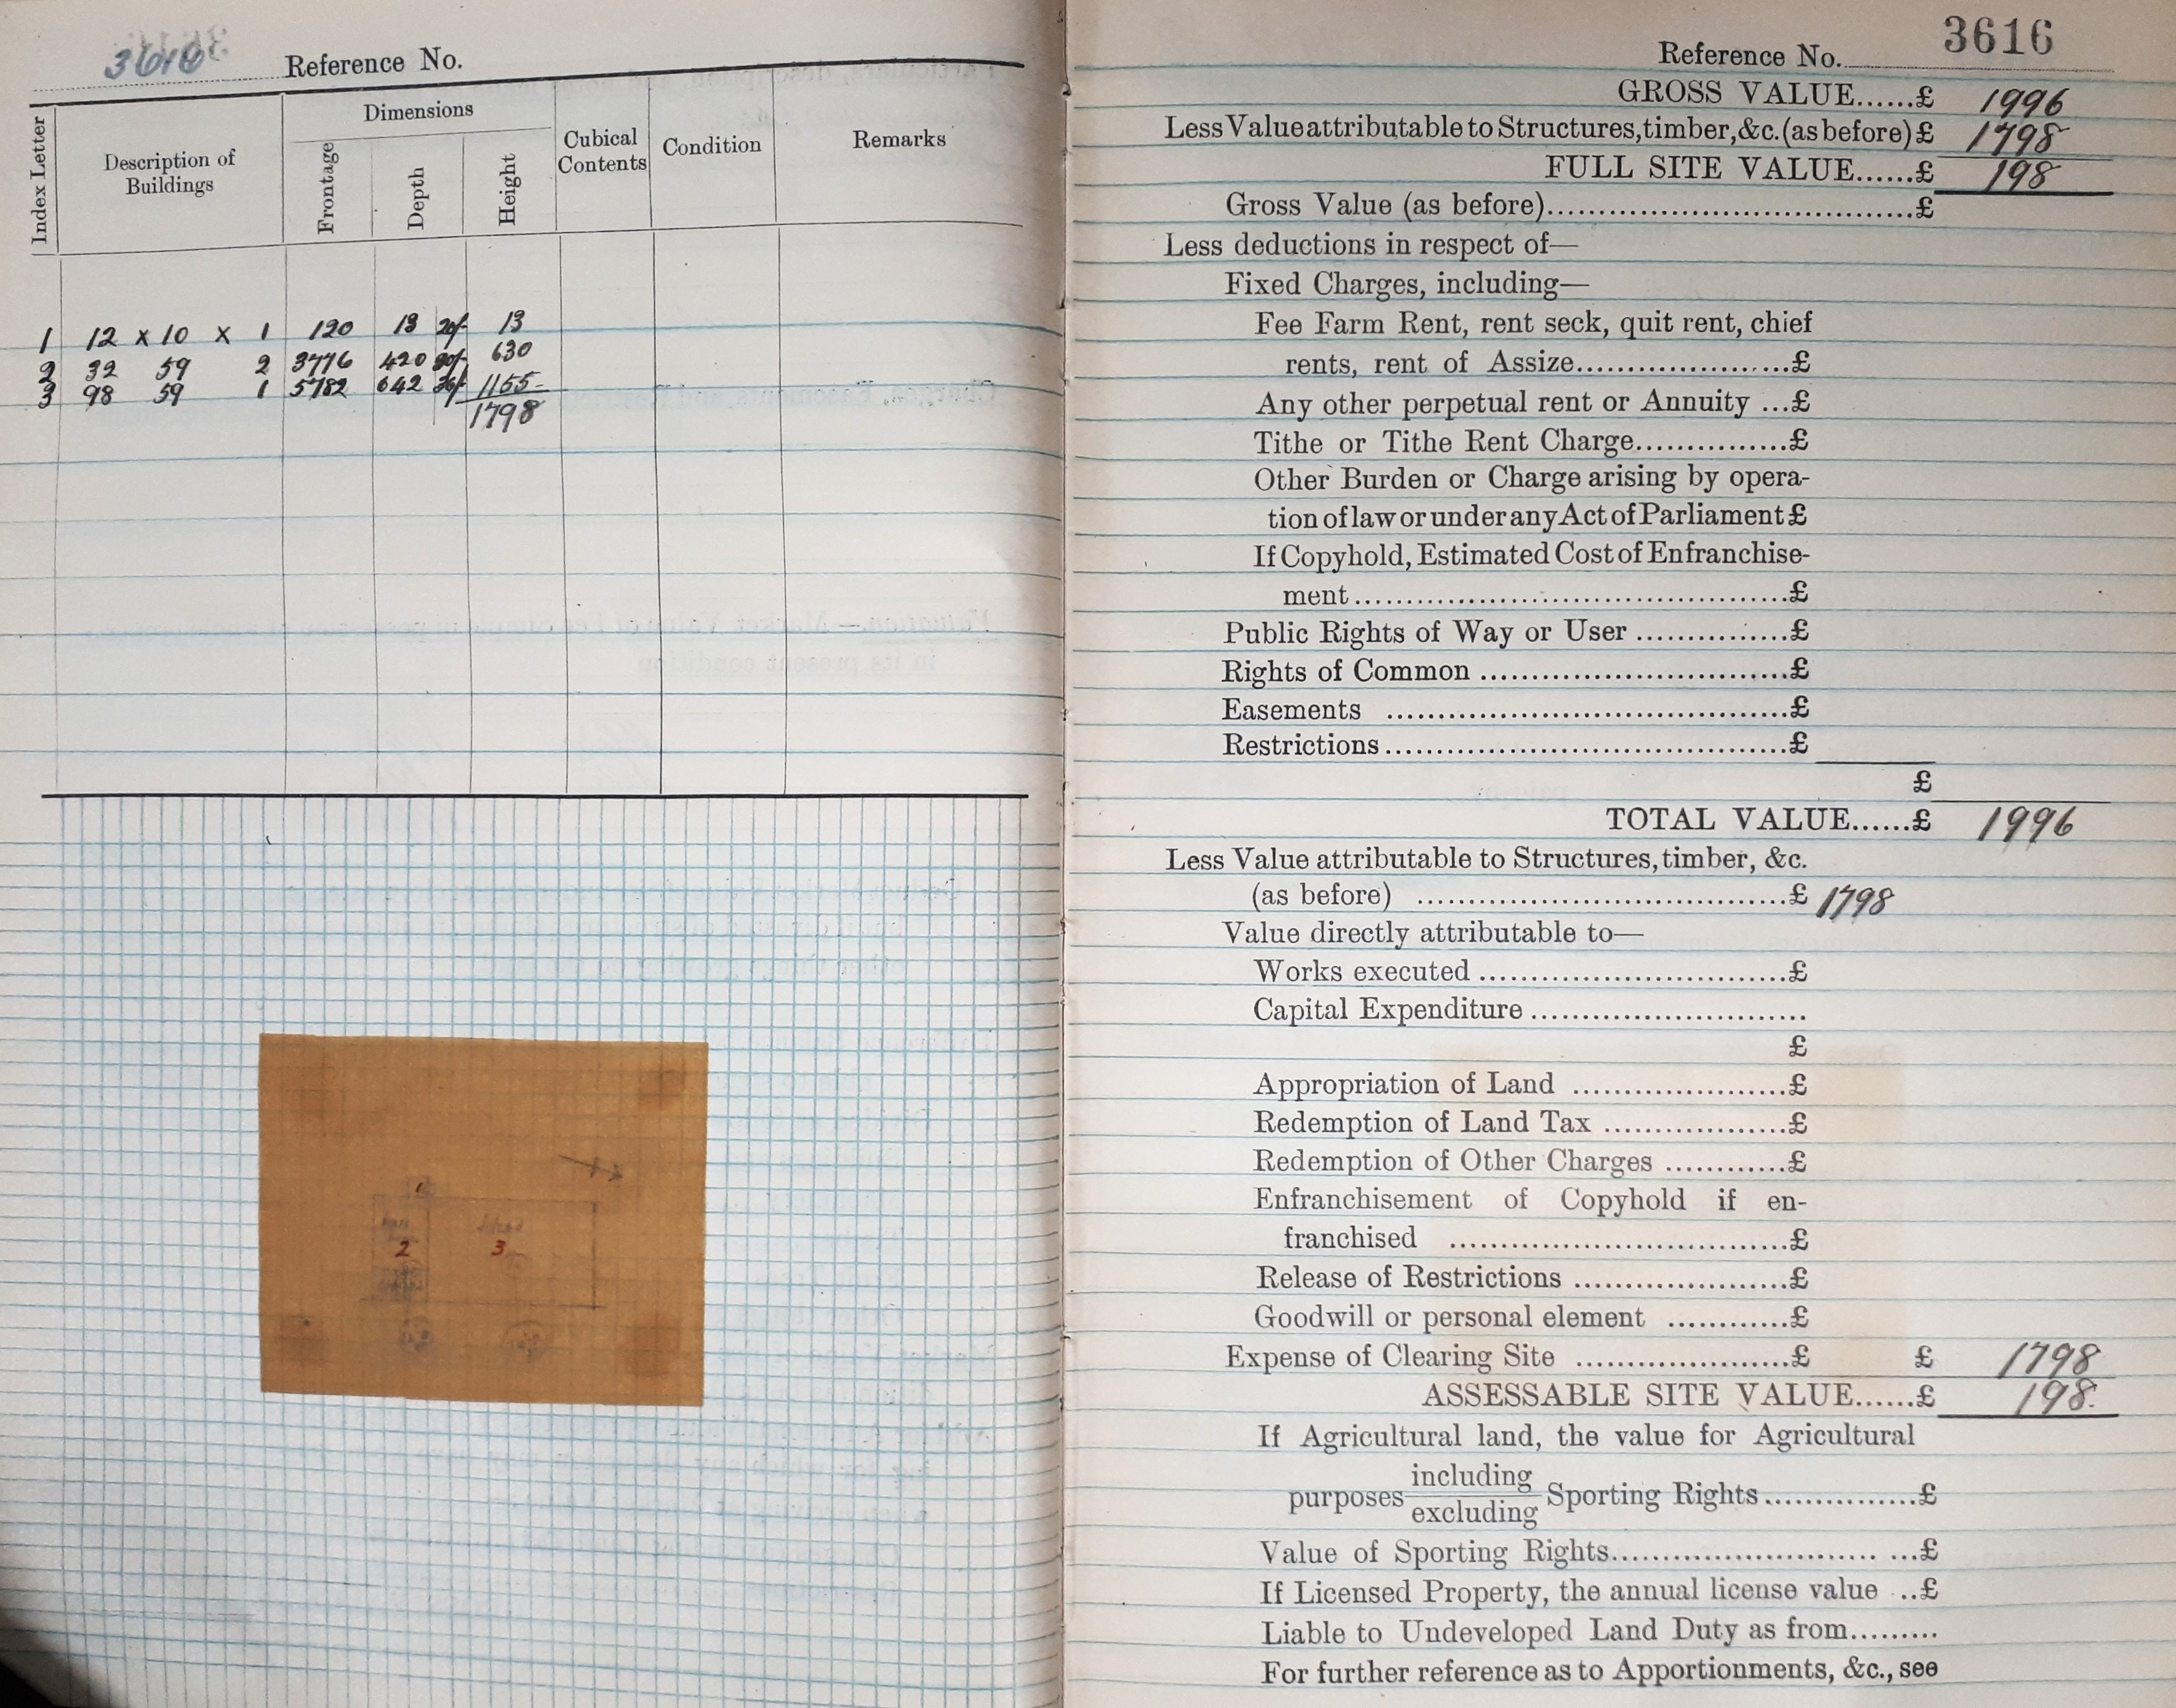 Reference No.
Index Letter
Description of Buildings
Dimensions
Frontage
Depth
Height
Cubical Contents
Condition
Remarks
1 12 x 10 x 1 120 13 20/- 13
2 32 59 2 3776 420 30/- 630
3 98 59 1 5782 642 36/- 1155
1798
1
2
3
Reference No. 3616
GROSS VALUE......£ 1996
Less Value attributable to Structures, timber, &c. (as before) £ 1798
FULL SITE VALUE......£ 198
Gross Value (as before)......£
Less deductions in respect of—
Fixed Charges, including—
Fee Farm Rent, rent seck, quit rent, chief
rents, rent of Assize......£
Any other perpetual rent or Annuity ...£
Tithe or Tithe Rent Charge......£
Other Burden or Charge arising by opera-
tion of law or under any Act of Parliament £
If Copyhold, Estimated Cost of Enfranchise-
ment......£
Public Rights of Way or User......£
Rights of Common......£
Easements......£
Restrictions......£
£
TOTAL VALUE......£ 1996
Less Value attributable to Structures, timber, &c.
(as before)......£ 1798
Value directly attributable to—
Works executed......£
Capital Expenditure......
£
Appropriation of Land......£
Redemption of Land Tax......£
Redemption of Other Charges......£
Enfranchisement of Copyhold if en-
franchised......£
Release of Restrictions......£
Goodwill or personal element......£
Expense of Clearing Site......£ £ 1798
ASSESSABLE SITE VALUE......£ 198.
If Agricultural land, the value for Agricultural
purposes including
excluding Sporting Rights......£
Value of Sporting Rights......£
If Licensed Property, the annual license value ..£
Liable to Undeveloped Land Duty as from.........
For further reference as to Apportionments, &c., see